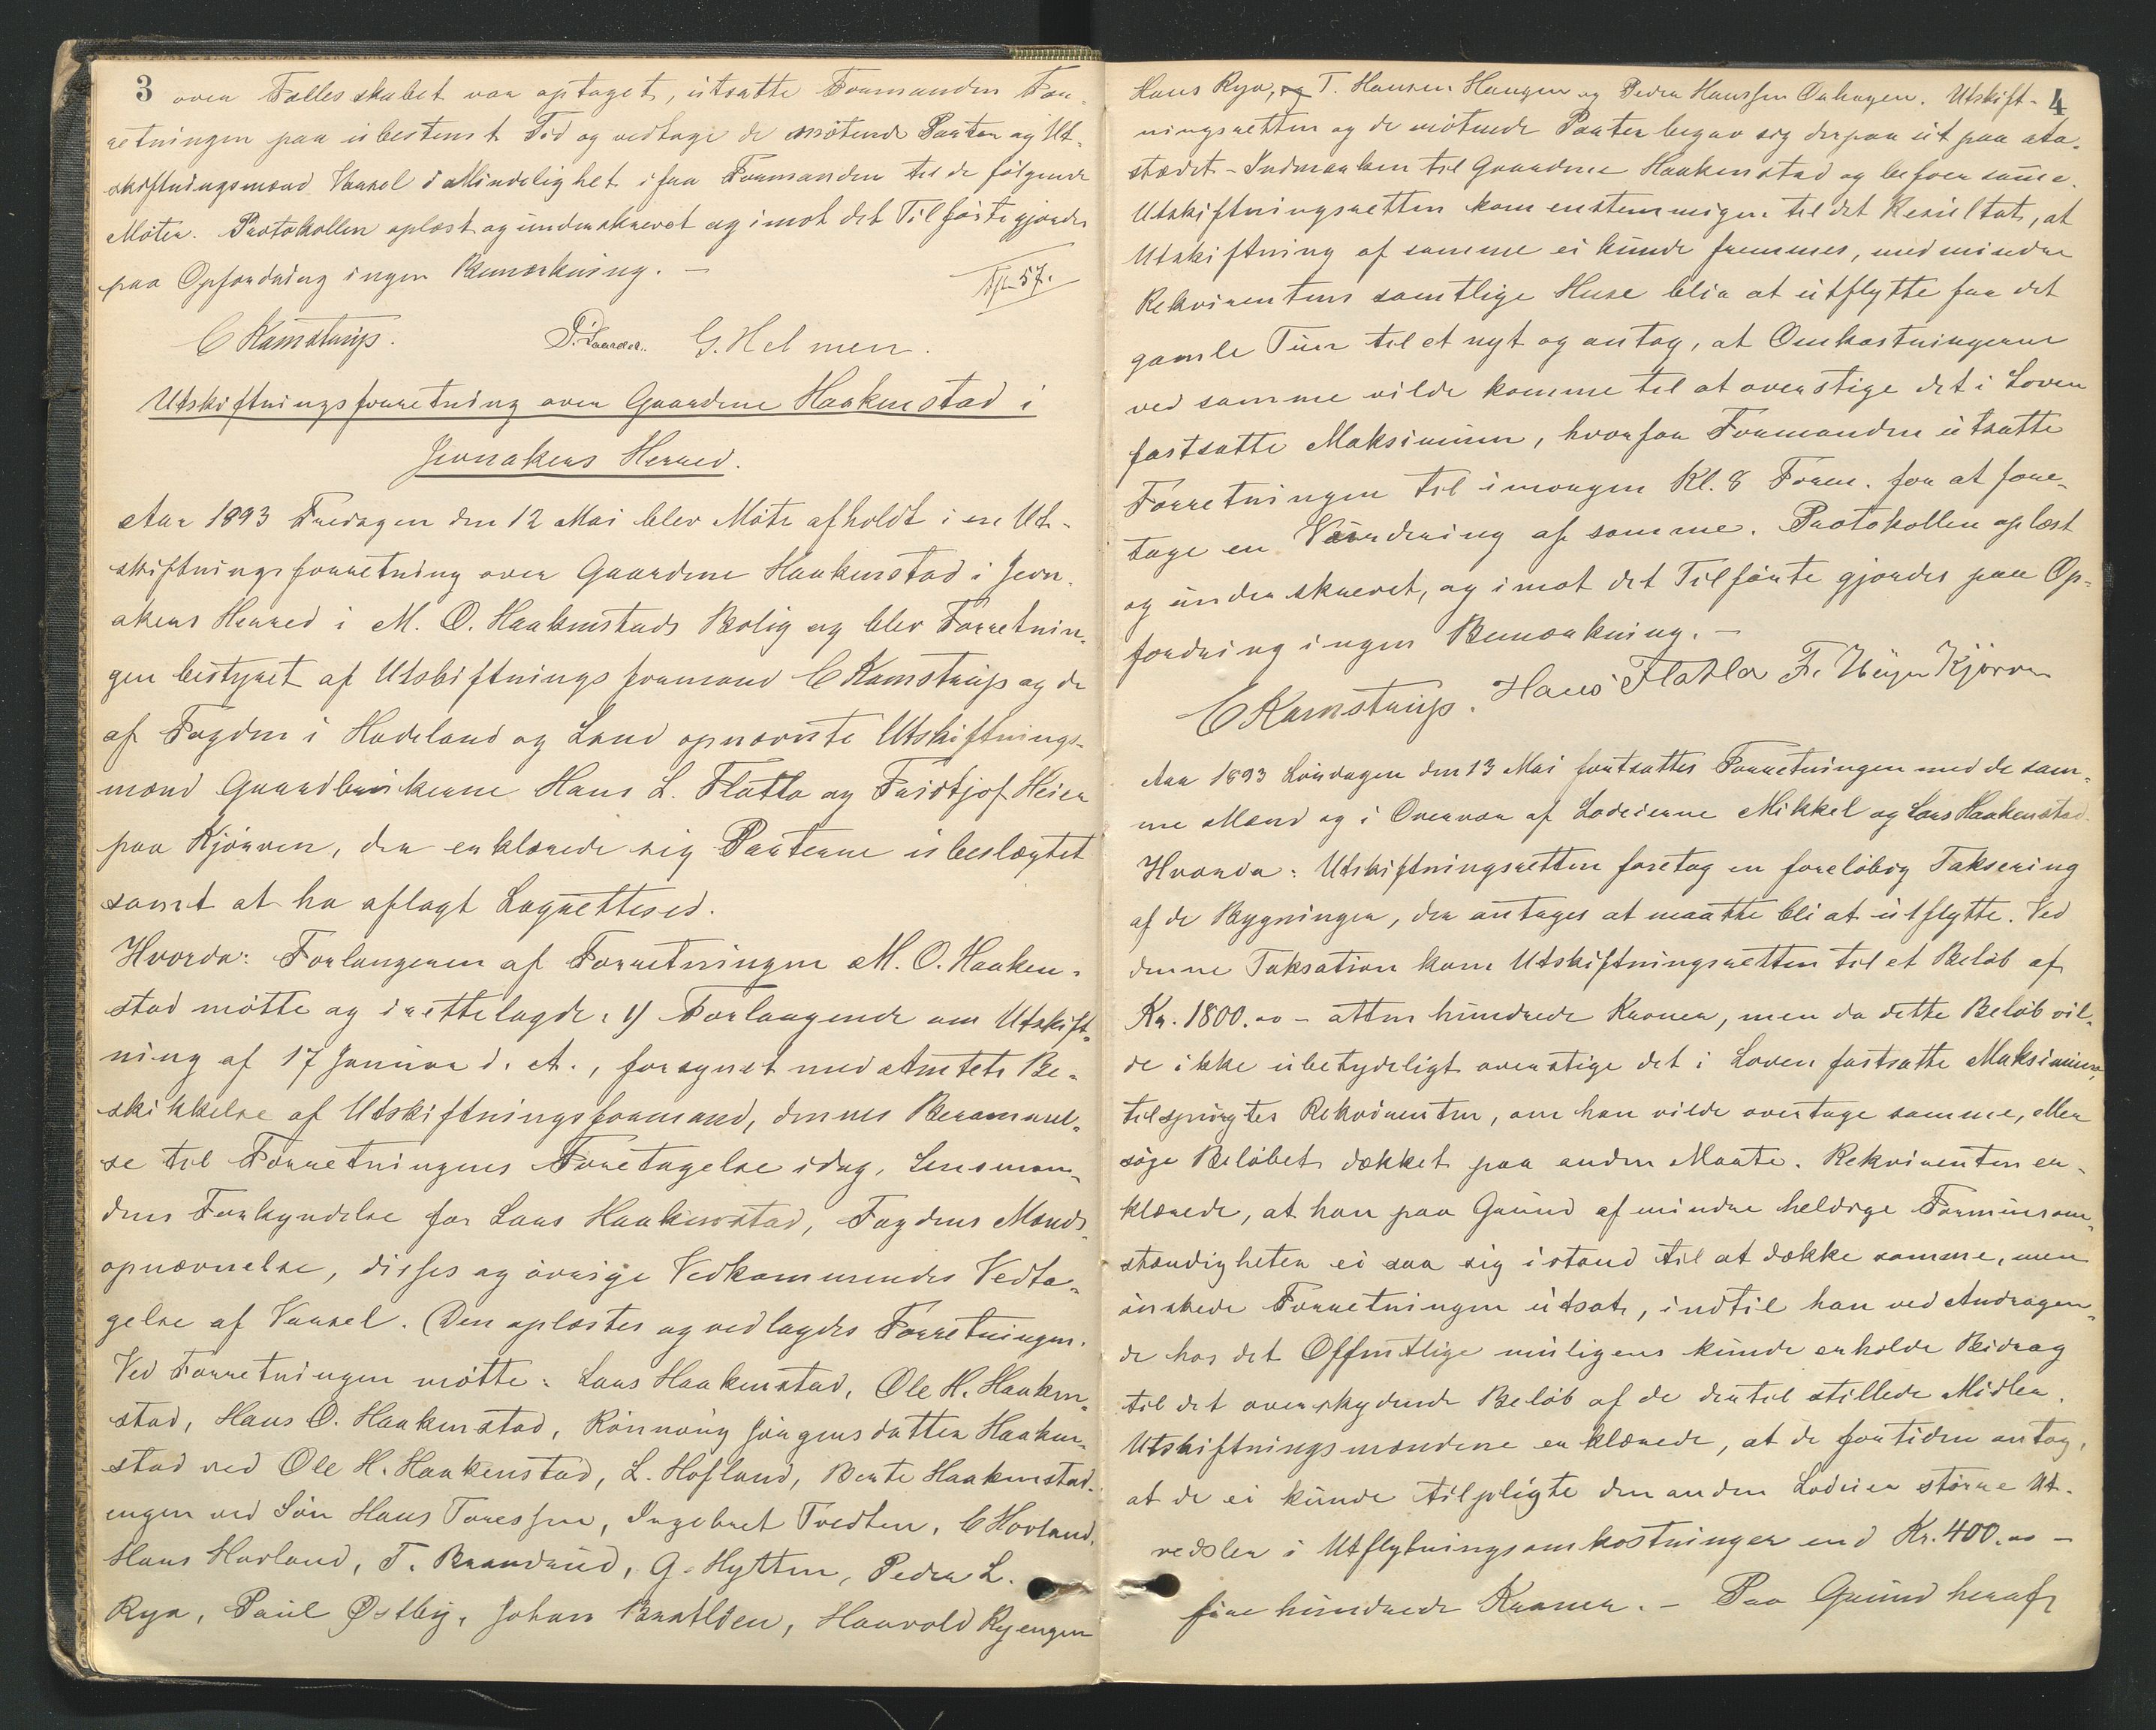 3
over Fællesskabet var optaget, utsatte Formanden For-
retningen paa ubestemt Tid og vedtoge de møtende Parter og Ut-
skiftningsmænd Varsel i Mindelighet ifra Formanden til de følgende
Møter. Protokollen oplæst og underskrevet og imot det Tilførte gjordes
paa Opfordring ingen Bemærkning. —
57.
C Kamstrup. G. Helmen.
Utskiftningsforretning over Gaardene Haakenstad i
Jevnakers Herred.
Aar 1893 Fredagen den 12 Mai blev Møte afholdt i en Ut-
skiftningsforretning over Gaardene Haakenstad i Jevn-
akers Herred i M. O. Haakenstads Bolig og blev Forretnin-
gen bestyret af Utskiftningsformand C Kamstrup og de
af Fogden i Hadeland og Land opnævnte Utskiftnings-
mænd Gaardbrukerne Hans L. Flatla og Fridtjof Heier
paa Kjørven, der erklærede sig Parterne ubeslægtet
samt at ha aflagt Lagrettesed.
Hvorda: Forlangeren af Forretningen M. O. Haaken-
stad møtte og irettelagde: 1) Forlangende om Utskift-
ning af 17 Januar d. A., forsynet med Amtets Be-
skikkelse af Utskiftningsformand, dennes Berammel-
se til Forretningens Foretagelse idag, Lensman-
dens Forkyndelse for Lars Haakenstad, Fogdens Mænds-
opnævnelse, disses og øvrige Vedkommendes Vedta-
gelse af Varsel. Den oplæstes og vedlagdes Forretningen.
Ved Forretningen møtte: Lars Haakenstad, Ole H. Haaken-
stad, Hans O. Haakenstad, Rønnøug Jørgensdatter Haaken-
stad ved Ole H. Haakenstad, L. Hofland, Bente Haakenstad-
engen ved Søn Hans Toressen, Ingebret Tvedten, C Hovland,
Hans Hovland, T. Brandrud, G. Hytten, Peder L.
Rya, Paul Østby, Johan Bratlien, Haavold Ryengen
4
Hans Rya, og T. Hansen Haugen og Peder Hanssen . Utskift-
ningsretten og de møtende Parter begav sig derpaa ut paa Aa-
stædet - Indmarken til Gaardene Haakenstad og befoer samme.
Utskiftningsretten kom enstemmigen til det Resultat, at
Utskiftning af samme ei kunde fremmes, medmindre
Rekvirentens samtlige Huse blir at utflytte fra det
gamle Tun til et nyt og antog, at Omkostningerne
ved samme vilde komme til at overstige det i Loven
fastsatte Maksimum, hvorfor Formanden utsatte
Forretningen til imorgen Kl. 8 Form. for at fore-
tage en Vurdering af samme. Protokollen oplæst
og underskrevet, og imot det Tilførte gjordes paa Op-
fordring ingen Bemærkning. —
C Kamstrup. Hans Flatla F. Heyer Kjørven
Aar 1893 Lørdagen den 13 Mai fortsattes Forretningen med de sam-
me Mænd og i Overvær af Lodeierne Mikkel og Lars Haakenstad.
Hvorda: Utskiftningsretten foretog en foreløbig Taksering
af de Bygninger, der antages at maatte bli at utflytte. Ved
denne Taksation kom Utskiftningsretten til et Beløb af
Kr. 1800.00 - atten hundrede Kroner, men da dette Beløb vil-
de ikke ubetydeligt overstige det i Loven fastsatte Maksimum,
tilspurgtes Rekvirenten, om han vilde overtage samme, eller
søge Beløbet dækket paa anden Maate. Rekvirenten er-
klærede, at han paa Grund af mindre heldige Formuesom-
stændigheter ei saa sig istand til at dække samme, men
ønskede Forretningen utsat, indtil han ved Andragen-
de hos det Offentlige muligens kunde erholde Bidrag
til det overskydende Beløb af de dertil stillede Midler.
Utskiftningsmændene erklærede, at de fortiden antog,
at de ei kunde tilpligte den anden Lodeier større Ut-
redsler i Utflytningsomkostninger end Kr. 400.00 —
fire hundrede Kroner. — Paa Grund heraf